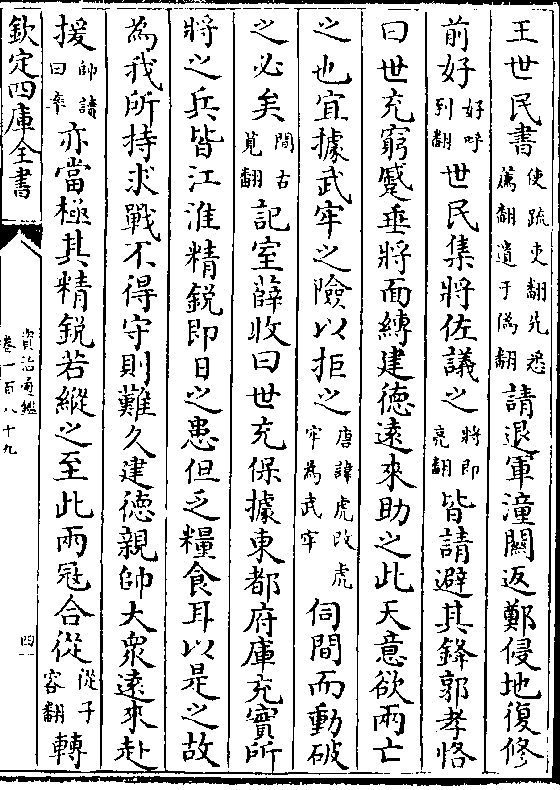 王世民書使疏吏翻先悉薦翻遺于偽翻請退軍潼關返鄭侵地復修
前好好呼到翻世民集將佐議之將即亮翻皆請避其鋒郭孝恪
曰世充窮蹙垂將面縛建徳遠來助之此天意欲兩亡
之也宜據武牢之險以拒之唐諱虎改虎牢為武牢伺間而動破
之必矣間古莧翻記室薛收曰世充保據東都府庫充實所
將之兵皆江淮精鋭即日之患但乏糧食耳以是之故
為我所持求戰不得守則難久建徳親帥大衆遠來赴
援帥讀曰率亦當極其精鋭若縱之至此兩冦合從從子容翻轉
欽定四庫全書
資治通鑑
卷一百八十九
四